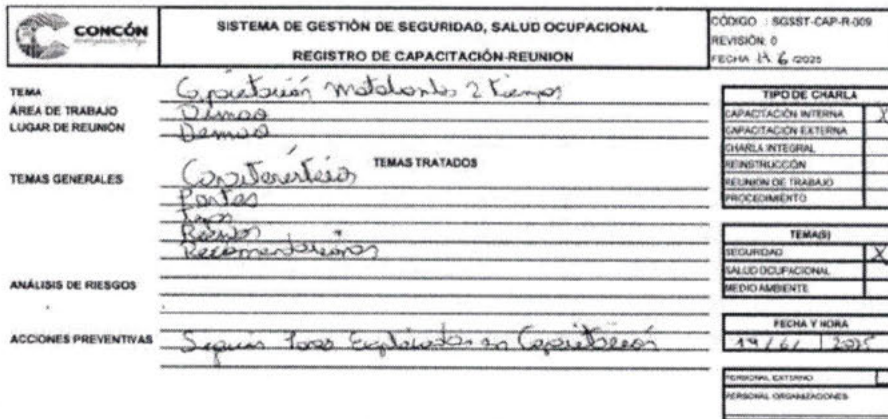 CONCÓN
SISTEMA DE GESTIÓN DE SEGURIDAD, SALUD OCUPACIONAL
REGISTRO DE CAPACITACIÓN-REUNION
CÓDIGO : SGSST-CAP-R-009
REVISIÓN: 0
FECHA 6 /2025
TEMA Capacitación 2 tiempos
ÁREA DE TRABAJO Dimao
LUGAR DE REUNIÓN
TEMAS TRATADOS
TEMAS GENERALES
Partes
Recomendaciones
ANÁLISIS DE RIESGOS
ACCIONES PREVENTIVAS Seguir en Capacitación
TIPO DE CHARLA
CAPACITACIÓN INTERNA X
CAPACITACIÓN EXTERNA
CHARLA INTEGRAL
REINSTRUCCIÓN
REUNION DE TRABAJO
PROCEDIMIENTO
TEMA(S)
SEGURIDAD X
SALUD OCUPACIONAL
MEDIO AMBIENTE
FECHA Y HORA
19/6/ 2025
PERSONAL EXTERNO
PERSONAL ORGANIZACIONES